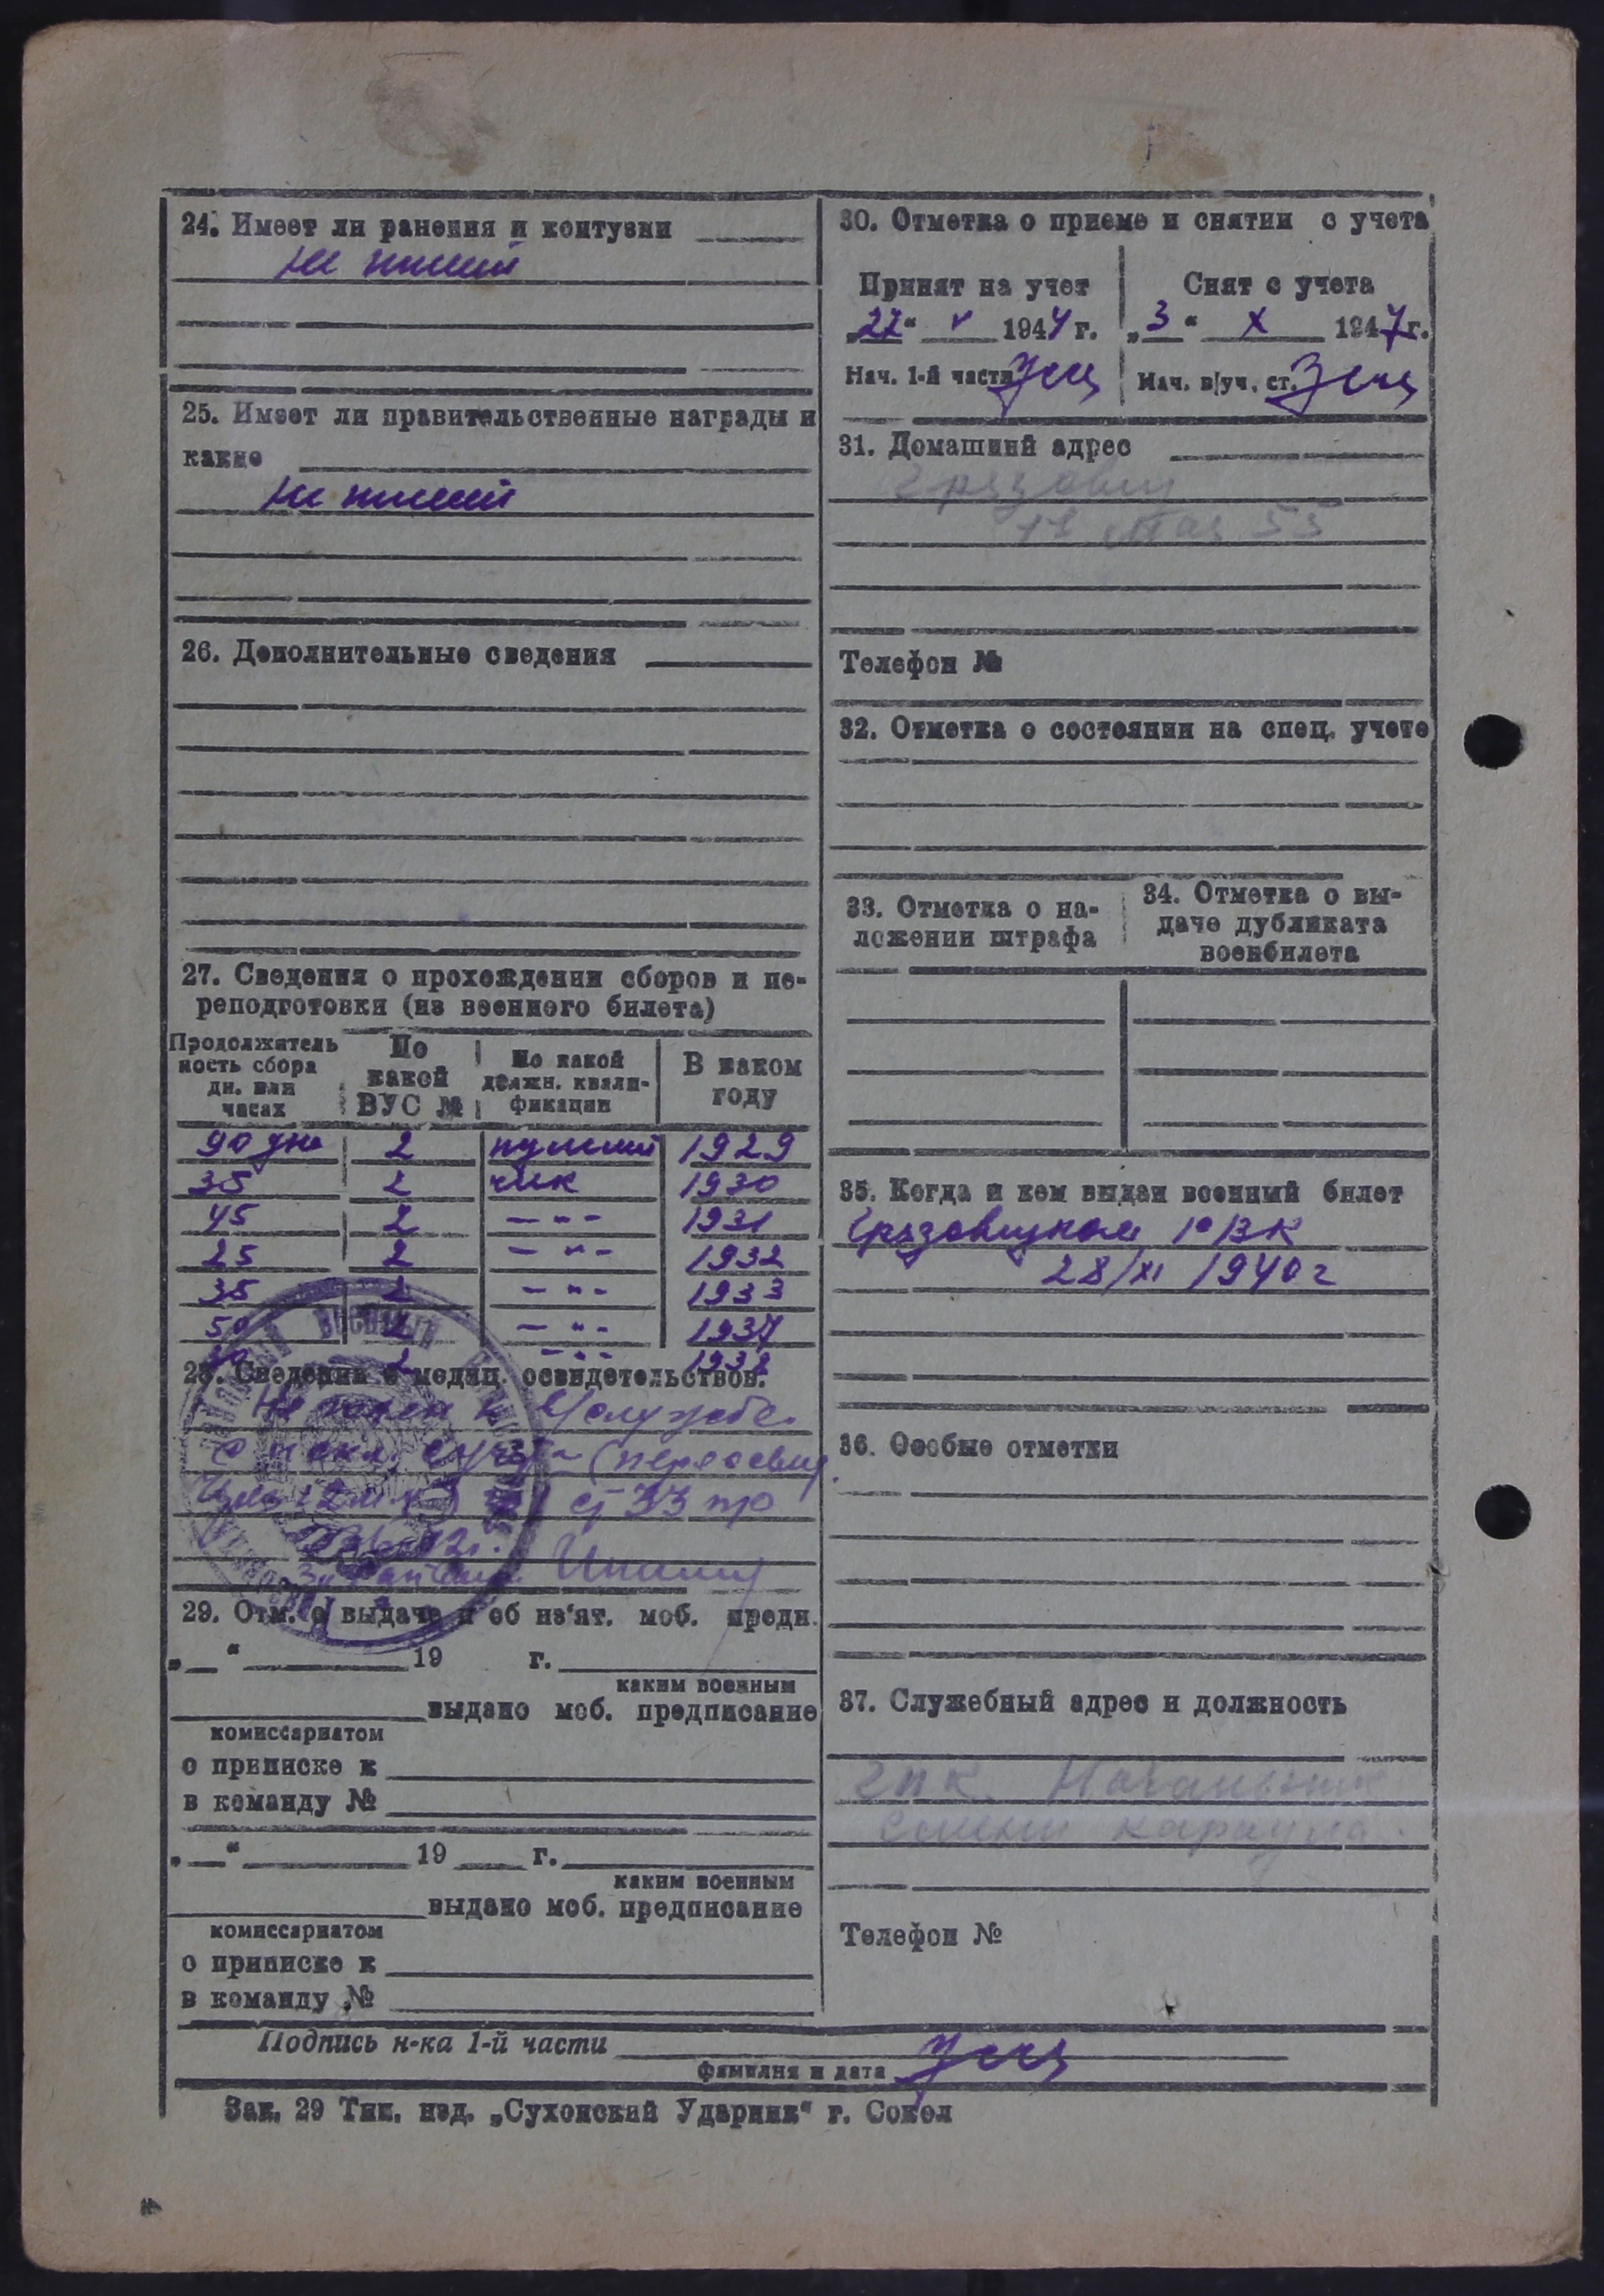 24. Имеет ли ранения и контузии
Не имеет
25. Имеет ли правительственные награды и
какие
Не имеет
26. Дополнительные сведения
27. Сведения о прохождении сборов и пе-
реподготовки (из военного билета)
Продолжитель
ность сбора
дн. или
часах
По
какой
ВУС №
По какой
должн. квали-
фикации
В каком
году
90 дне 2 пулемет 1929
35 2 чик 1930
45 2 – " – 1931
25 2 – " – 1932
35 2 – " – 1933
50 2 – " – 1937
2 – " – 1938
28. Сведения о медиц. освидетельствов.
Не годен к службе
с искл. с учета (переосвид.
ст 33 пр
29. Отм. о выдаче и об из'ят. моб. предп.
„ “ 19 г.
каким военным
выдано моб. предписание
комиссариатом
о приписке к
в команду №
„ “ 19 г.
каким военным
выдано моб. предписание
комиссариатом
о приписке к
в команду №
30. Отметка о приеме и снятии с учета
Принят на учет
„27“ V 1944 г.
Нач. 1-й части
Снят с учета
„3“ X 1947 г.
Нач. в/уч. ст.
31. Домашний адрес
Грязовец
1е Мая 55
Телефон №
32. Отметка о состоянии на спец. учете
33. Отметка о на-
ложении штрафа
34. Отметка о вы-
даче дубликата
военбилета
35. Когда и кем выдан военный билет
Грязовецким РВК
28/XI 1940 г
36. Особые отметки
37. Служебный адрес и должность
ГПК Начальник
смены караула.
Телефон №
Подпись н-ка 1-й части
фамилия и дата
Зак. 29 Тип. изд. „Сухонский Ударник“ г. Сокол